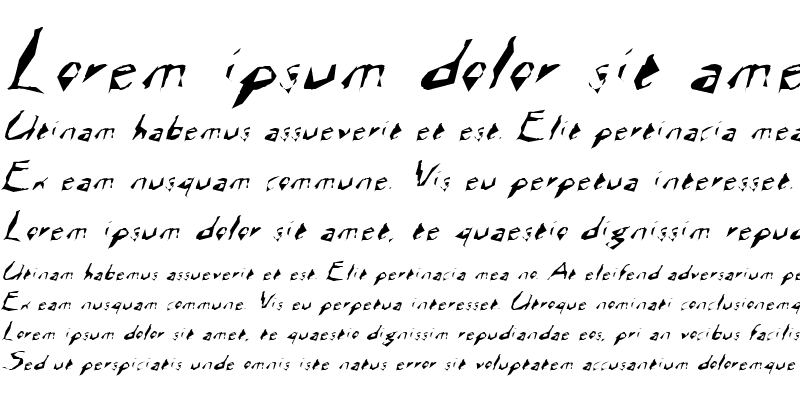 Lorem ipsum dolor sit ame
Utinam habemus assueverit et est. Elit pertinacia mea
Ex eam nusquam commune. Vis eu perpetua interesset.
Lorem ipsum dolor sit amet, te quaestio dignissim repud
Utinam habemus assueverit et est. Elit pertinacia mea no. At eleifend adversarium pe
Ex eam nusquam commune. Vis eu perpetua interesset. Utroque nominati conclusionemq
Lorem ipsum dolor sit amet, te quaestio dignissim repudiandae eos, pri an vocibus facilis
Sed ut perspiciatis unde omnis iste natus error sit voluptatem accusantium doloremque